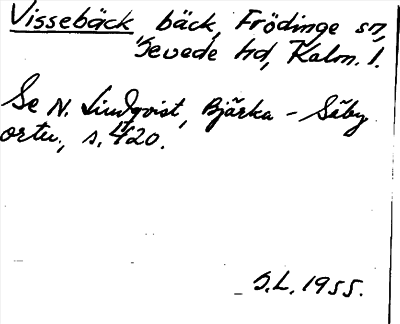 Vissebäck bäck, Frödinge sn,
Sevede hd, Kalm. l.
Se N. Lindqvist, Bjärka - Säby
ortn., s. 420.
S.L. 1955.